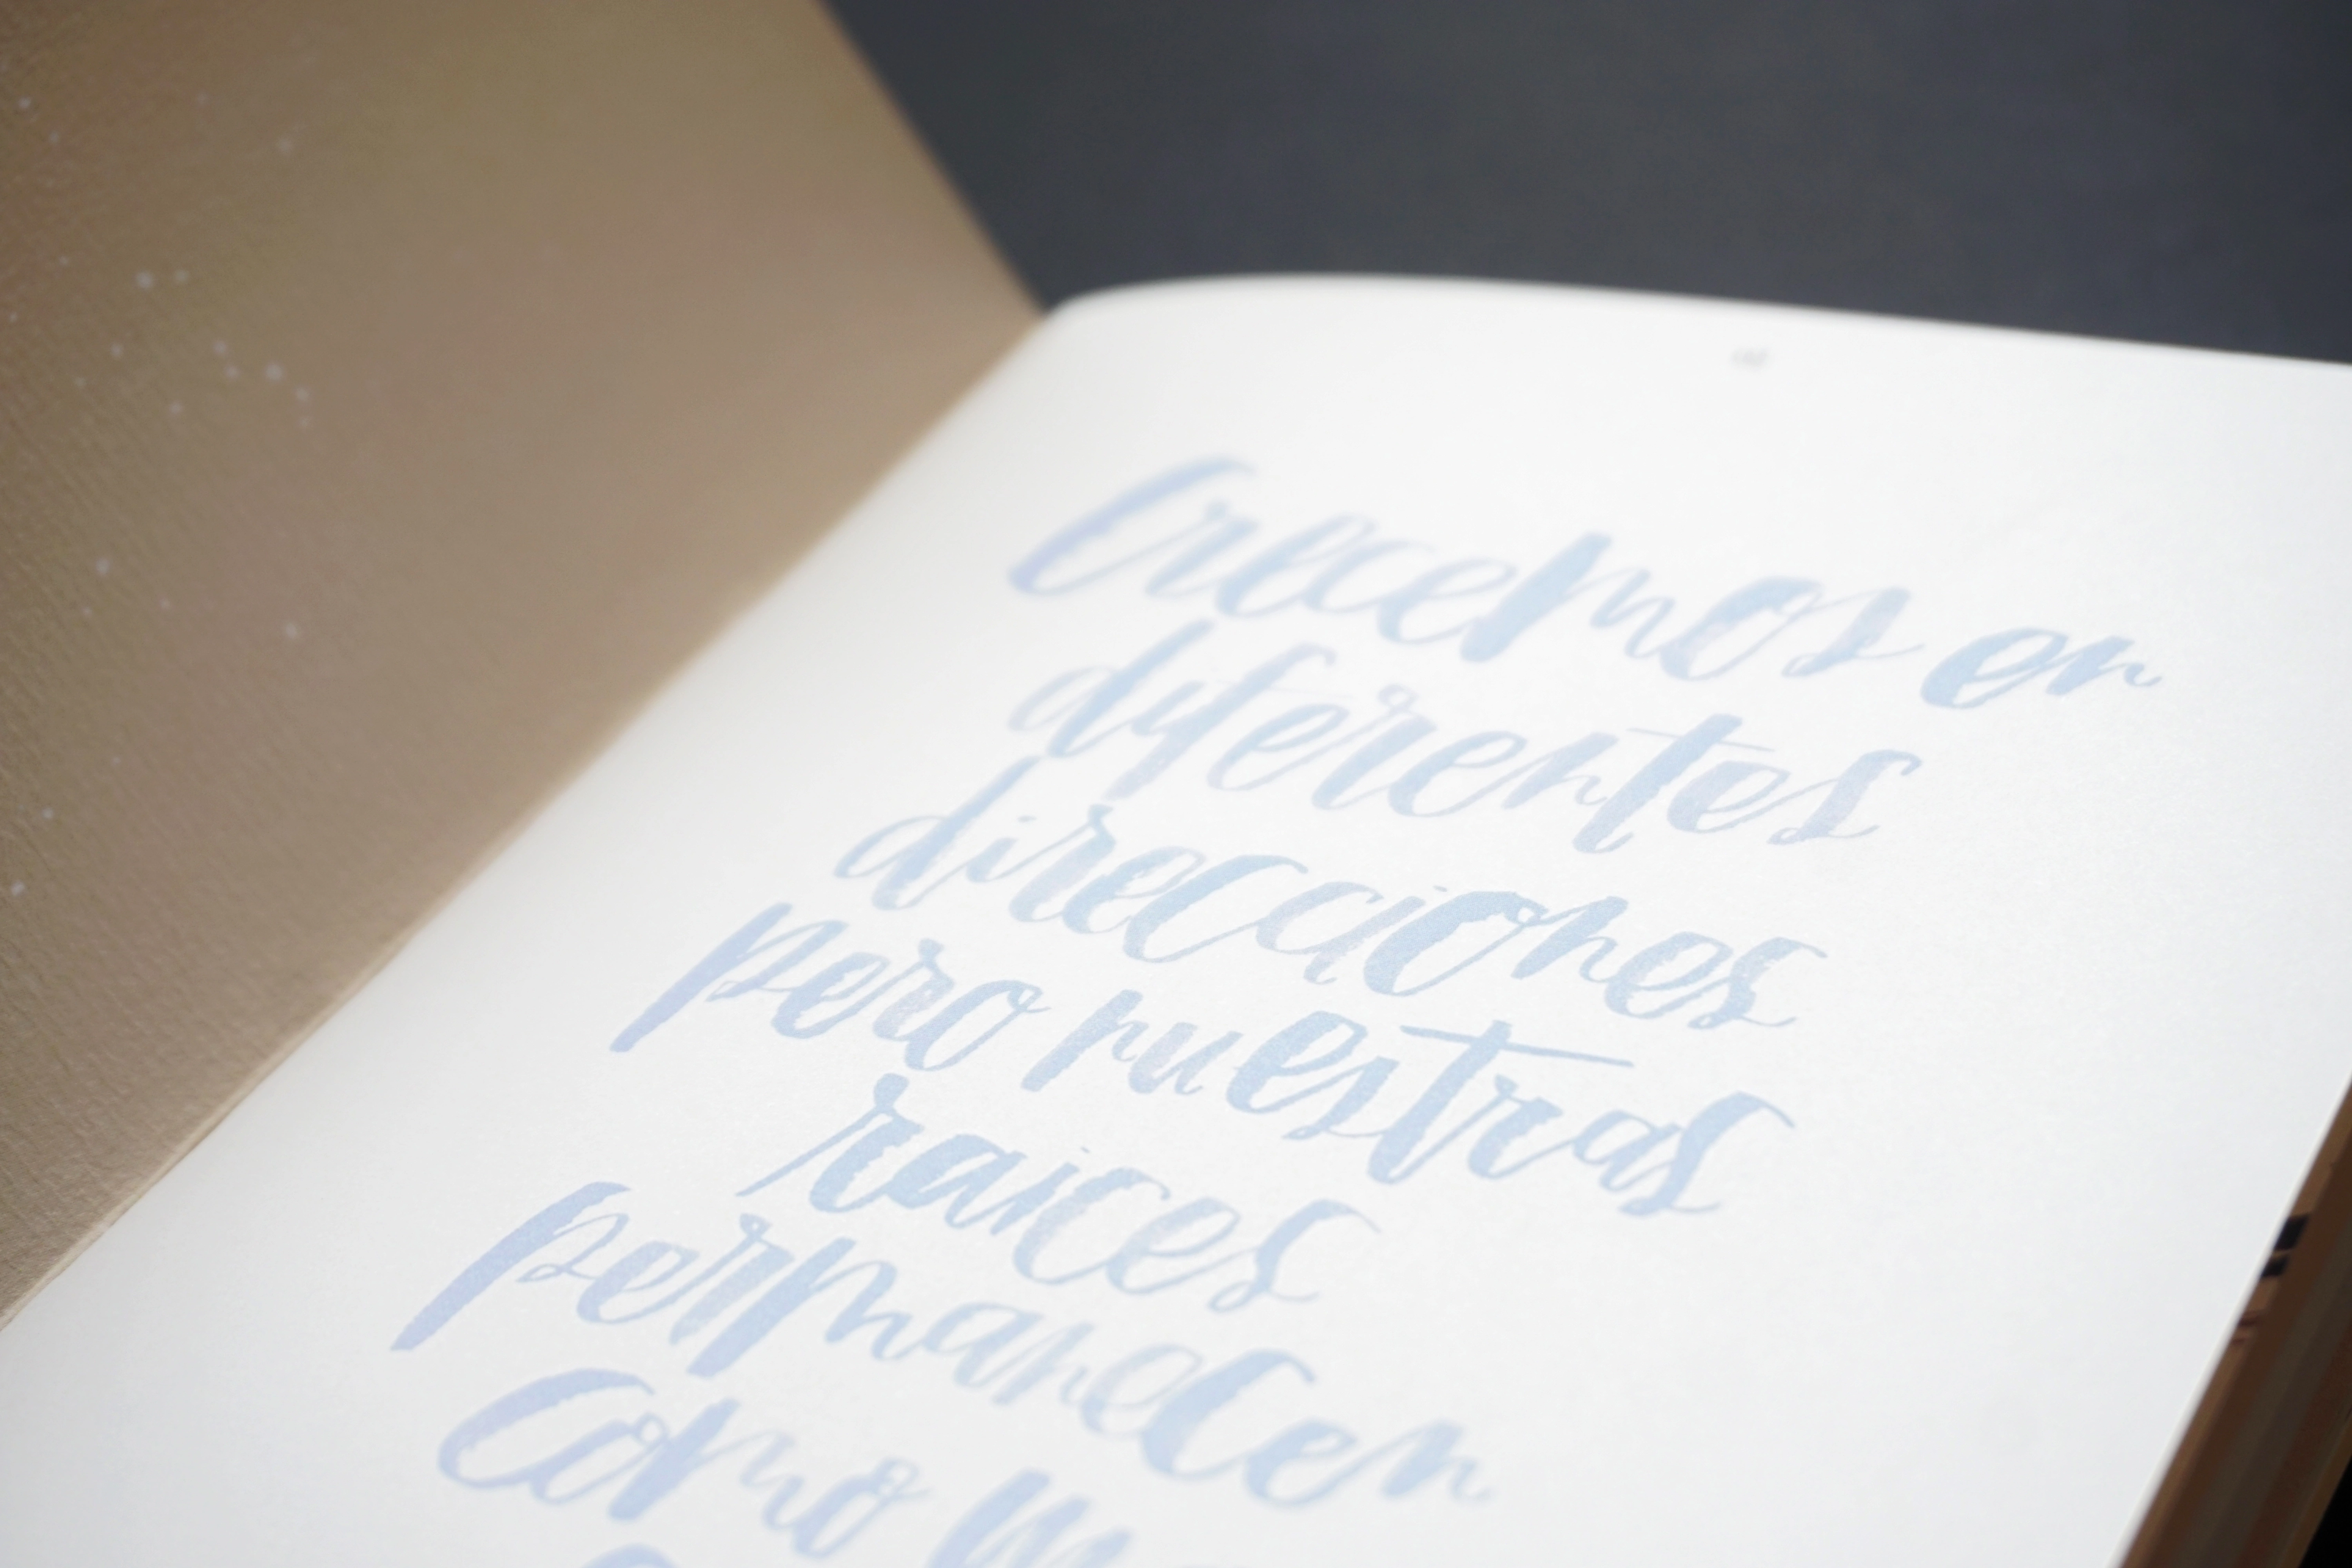 Crecemos en
diferentes
direcciones
pero nuestras
raices
permanecen
como